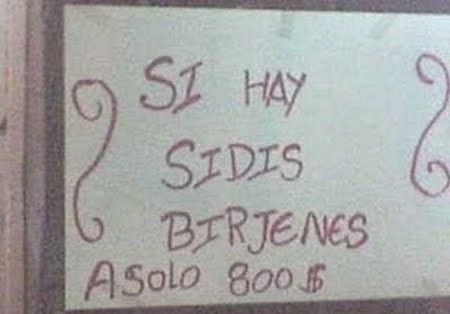 SI HAY
SIDIS
BIRJENES
A SOLO 800 $